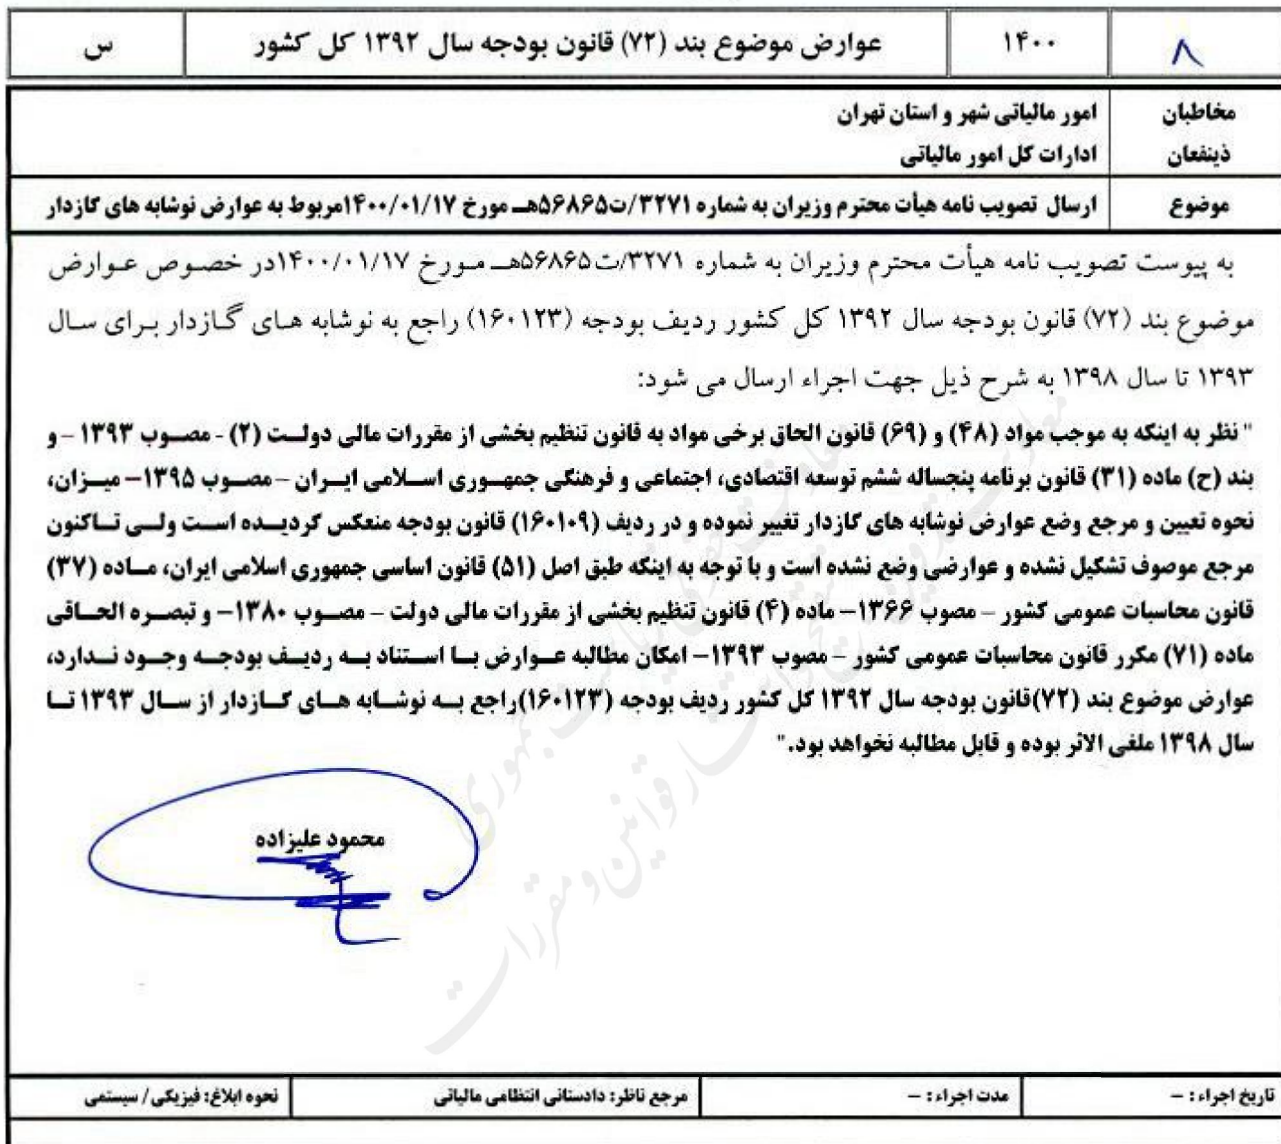 ۸ ۱۴۰۰ عوارض موضوع بند (۷۲) قانون بودجه سال ۱۳۹۲ کل کشور س
مخاطبان امور مالیاتی شهر و استان تهران
ذینفعان ادارات کل امور مالیاتی
موضوع ارسال تصویب نامه هیأت محترم وزیران به شماره ۳۲۷۱/ت۵۶۸۶۵هـ مورخ ۱۴۰۰/۰۱/۱۷مربوط به عوارض نوشابه های گازدار
به پیوست تصویب نامه هیأت محترم وزیران به شماره ۳۲۷۱/ت۵۶۸۶۵هـ مورخ ۱۴۰۰/۰۱/۱۷در خصوص عوارض
موضوع بند (۷۲) قانون بودجه سال ۱۳۹۲ کل کشور ردیف بودجه (۱۶۰۱۲۳) راجع به نوشابه های گازدار برای سال
۱۳۹۳ تا سال ۱۳۹۸ به شرح ذیل جهت اجراء ارسال می شود:
" نظر به اینکه به موجب مواد (۴۸) و (۶۹) قانون الحاق برخی مواد به قانون تنظیم بخشی از مقررات مالی دولت (۲) - مصوب ۱۳۹۳ – و
بند (ح) ماده (۳۱) قانون برنامه پنجساله ششم توسعه اقتصادی، اجتماعی و فرهنگی جمهوری اسلامی ایران – مصوب ۱۳۹۵– میزان،
نحوه تعیین و مرجع وضع عوارض نوشابه های گازدار تغییر نموده و در ردیف (۱۶۰۱۰۹) قانون بودجه منعکس گردیده است ولی تاکنون
مرجع موصوف تشکیل نشده و عوارضی وضع نشده است و با توجه به اینکه طبق اصل (۵۱) قانون اساسی جمهوری اسلامی ایران، ماده (۳۷)
قانون محاسبات عمومی کشور – مصوب ۱۳۶۶– ماده (۴) قانون تنظیم بخشی از مقررات مالی دولت – مصوب ۱۳۸۰– و تبصره الحاقی
ماده (۷۱) مکرر قانون محاسبات عمومی کشور – مصوب ۱۳۹۳– امکان مطالبه عوارض با استناد به ردیف بودجه وجود ندارد،
عوارض موضوع بند (۷۲)قانون بودجه سال ۱۳۹۲ کل کشور ردیف بودجه (۱۶۰۱۲۳)راجع به نوشابه های گازدار از سال ۱۳۹۳ تا
سال ۱۳۹۸ ملغی الاثر بوده و قابل مطالبه نخواهد بود."
محمود علیزاده
تاریخ اجراء : – مدت اجراء : – مرجع ناظر: دادستانی انتظامی مالیاتی نحوه ابلاغ: فیزیکی/ سیستمی